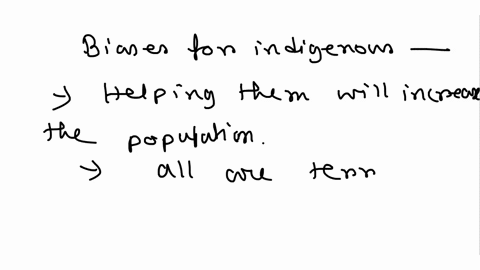 Biases for indigenous —
→ Helping them will increase
the population.
→ all are terr